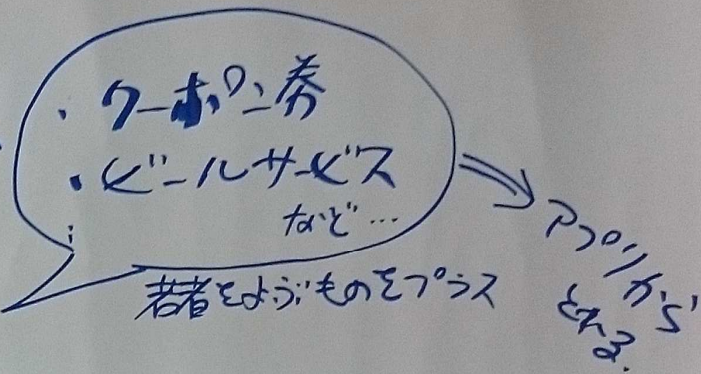 ・クーポン券
・ビールサービス
など…
若者をよぶものをプラス
アプリから
とれる.